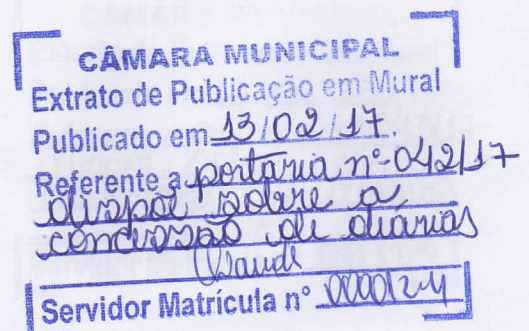 CÂMARA MUNICIPAL
Extrato de Publicação em Mural
Publicado em 13/02/17.
Referente a portaria nº-042/17
dispõe sobre a
concessão de diárias
Servidor Matrícula nº 000012-4